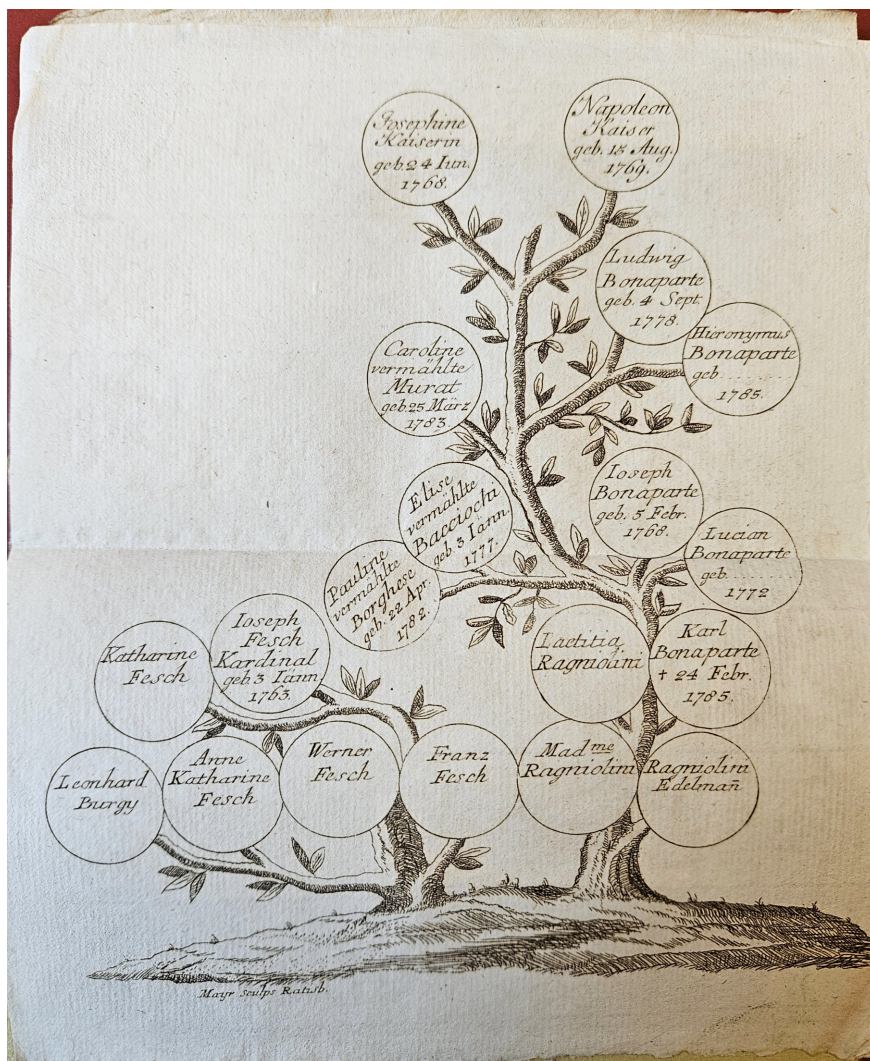 Josephine
Kaiserin
geb. 24 Iun.
1768.
Napoleon
Kaiser
geb. 15 Aug.
1769.
Ludwig
Bonaparte
geb. 4 Sept.
1778.
Hieronymus
Bonaparte
geb. ........
1785.
Caroline
vermählte
Murat
geb. 25 März
1783.
Elise
vermählte
Bacciochi
geb. 3 Iänn.
1777.
Ioseph
Bonaparte
geb. 5 Febr.
1768.
Lucian
Bonaparte
geb. ........
1772
Pauline
vermählte
Borghese
geb. 22 Apr.
1782.
Ioseph
Fesch
Kardinal
geb. 3 Iänn.
1763.
Katharine
Fesch
Laetitia
Ragniolini
Karl
Bonaparte
† 24 Febr.
1785.
Leonhard
Burgy
Anne
Katharine
Fesch
Werner
Fesch
Franz
Fesch
Madme
Ragniolini
Ragniolini
Edelmañ
Mayr sculps Ratisb.